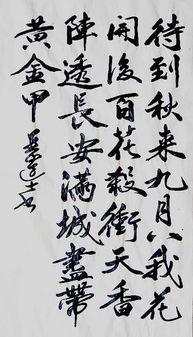 待到秋来九月八我花
開後百花殺衝天香
陣透長安滿城盡帶
黃金甲